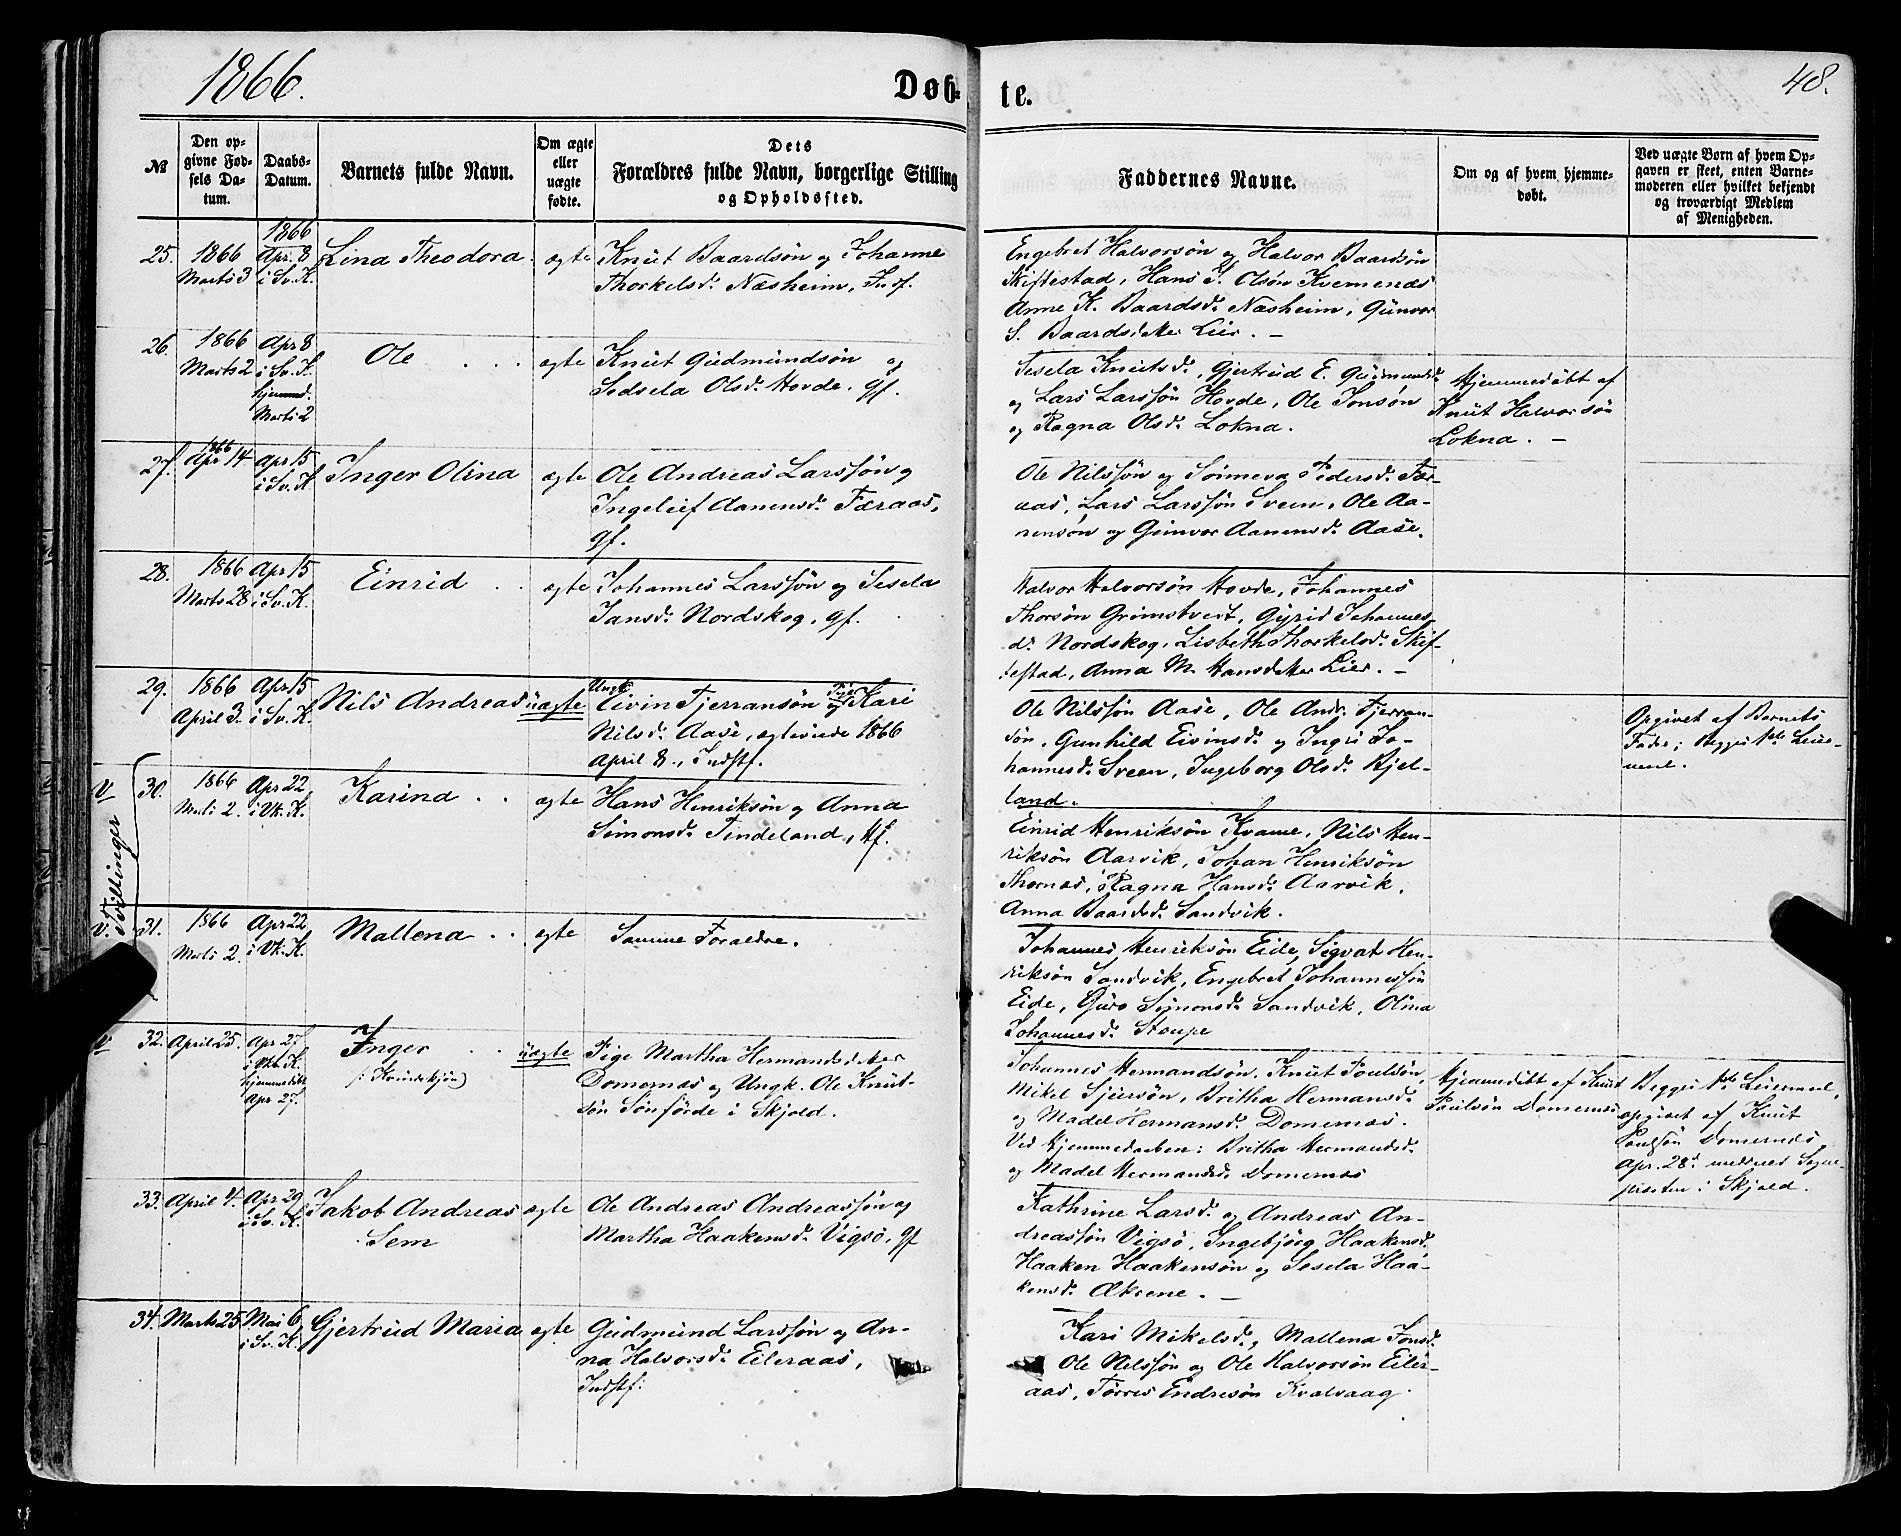 1866.
Døb-
te.
48.
№
Den op-
givne Fød-
sels Da-
tum.
Daabs-
Datum.
Barnets fulde Navn.
Om ægte
eller
uægte
fødte.
Dets
Forældres fulde Navn, borgerlige Stilling
og Opholdssted.
Faddernes Navne.
Om og af hvem hjemme-
døbt.
Ved uægte Børn af hvem Op-
gaven er skeet, enten Barne-
moderen eller hvilket bekjendt
og troværdigt Medlem
af Menigheden.
25.
1866
Marts 3
1866
Apr. 8
i Sv. K.
Lina Theodora
ægte
Knut Baardsøn og Johanne
Thorkelsd. Næsheim, Indf.
Engebret Halvorsøn og Halvor Baardsøn
Skiftestad, Hans J. Olsøn Kvemenæs
Anne K. Baardsd. Næsheim, Gunvor
S. Baardsdatter Lier. –
26.
1866
Marts 2
Apr 8
i Sv. K.
hjemmed.
Marts 2
Ole
ægte
Knut Gudmundsøn og
Sodsela Olsd. Hovde, gf.
Sesela Knutsd., Gjertrud E. Gudmundsd.
og Lars Larssøn Hovde, Ole Jonsøn
og Ragna Olsd. Lokna.
Hjemmedøbt af
Knut Halvorsøn
Lokna. –
27.
1866
Apr 14
Apr 15
i Sv. K.
Inger Olina
ægte
Ole Andreas Larssøn og
Ingelief Aanensd. Færaas,
gf.
Ole Nilssøn og Sønneva Pedersd. Fær-
aas, Lars Larssøn Sveen, Ole Aa-
nensøn og Gunvor Aanensd. Aase.
28.
1866
Marts 28
Apr 15
i Sv. K.
Einrid
ægte
Johannes Larssøn og Sesela
Jansd. Nordskog, gf.
Halvor Halvorsøn Hovde, Johannes
Thorsøn Grimstvedt, Gyrid Johannes-
d. Nordskog, Lisbeth Thorkelsd. Skif-
testad, Anna M. Hansdatter Lier. –
29.
1866
April 3.
Apr 15
i Sv. K.
Nils Andreas
uægte
Ungk. Eivin Tjerransøn og Pige Kari
Nilsd. Aase, ægteviede 1866
April 8., Indstf.
Ole Nilssøn Aase, Ole Andr. Tjerran-
søn, Gunhild Eivinsd. og Ingri Jo-
hannesd. Sveen, Ingeborg Olsd. Bjel-
land.
Opgivet af Barnets
Fader; Begges 1ste Leier-
maal.
V
Tvillinger
30.
1866
Marts 2.
Apr 22
i Vk. K.
Karina
ægte
Hans Henriksøn og Anna
Simonsd. Tindeland, Hf.
Einrid Henriksøn Kvame, Nils Hen-
riksøn Aarvik, Johan Henriksøn
Thornæs, Ragna Hansd. Aarvik,
Anna Baardsd. Sandvik.
V.
31.
1866
Marts 2.
Apr 22
i Vk. K.
Mallena
ægte
Samme Forældre.
Johannes Henriksøn Eide, Sigvat Hen-
riksøn Sandvik, Engebret Johannessøn
Eide, Guro Simonsd. Sandvik, Olina
Johannesd. Stoupe
V
32.
April 25.
Apr 27
i Vk. K.
hjemmedøbt
Apr 27.
Inger
(: Kvindekjøn)
uægte
Pige Martha Hermandsdatter
Domernæs og Ungk. Ole Knut-
søn Sønførde i Skjold.
Johannes Hermandsøn, Knut Poulsøn,
Mikel Sjursøn, Britha Hermansd.
og Madel Hermansd. Domernæs.
Ved Hjemmedaaben: Britha Hermandsd.
og Madel Hermandsd. Domernæs
Hjemmedøbt af Knut
Poulsøn Domernæs
Begges 1ste Leiermaal,
opgivet af Knut
Poulsøn Domernæs
Apr. 28d. meddelt Sogne-
præsten i Skjold.
33.
April 4.
Apr 29
i Sv. K.
Jakob Andreas
Sem
ægte
Ole Andreas Andreassøn og
Martha Haakensd. Vigsø, gf
Kathrine Larsd. og Andreas An-
dreassøn Vigsø, Ingebjørg Haakensd.
Haaken Haakensøn og Sesela Haa-
kensd. Økrene. –
34.
Marts 25
Mai 6
i Sv. K.
Gjertrud Maria
ægte
Gudmund Larssøn og An-
na Halvorsd. Eileraas,
Indstf.
Kari Mikelsd., Mallena Jonsd.
Ole Nilssøn og Ole Halvorsøn Eiler-
aas, Tørres Endresøn Kvalvaag.